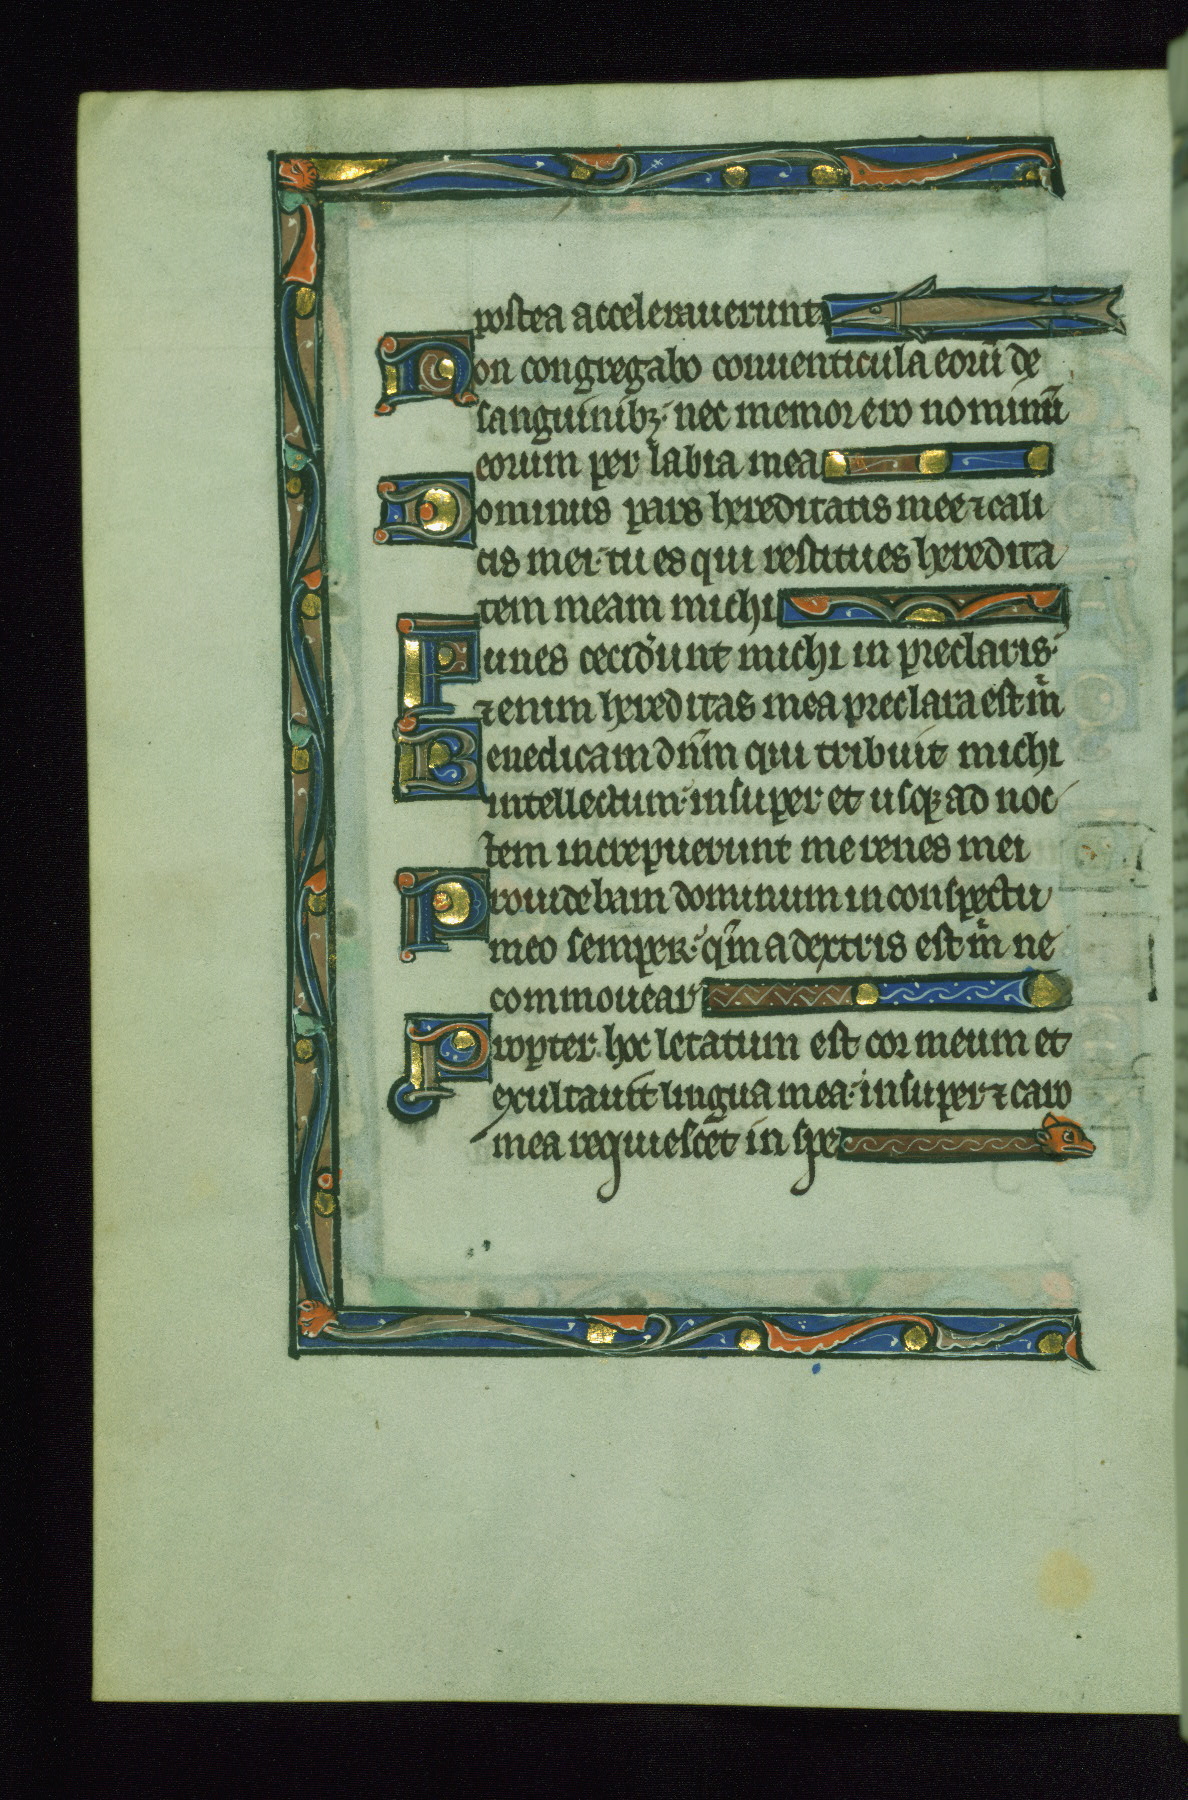 postea accelerauerunt
Non congregabo conuenticula eoru̅ de
sanguinibꝫ· nec memor ero nominu̅
eorum per labia mea
Dominus pars hereditatis mee ⁊ cali
cis mei· tu es qui restitues heredita
tem meam michi
Funes cecider̅unt michi in preclaris·
⁊enim hereditas mea preclara est m̅
Benedicam dn̅m qui tribuit michi
intellectum· insuper et usqꝫ ad noc
tem increpuerunt me renes mei
Prouidebam dominum in conspectu
meo semper· qm̅ a dextris est m̅ ne
commouear
Propter hoc letatum est cor meum et
exultauit lingua mea· insuper ⁊ caro
mea requiescet in spe